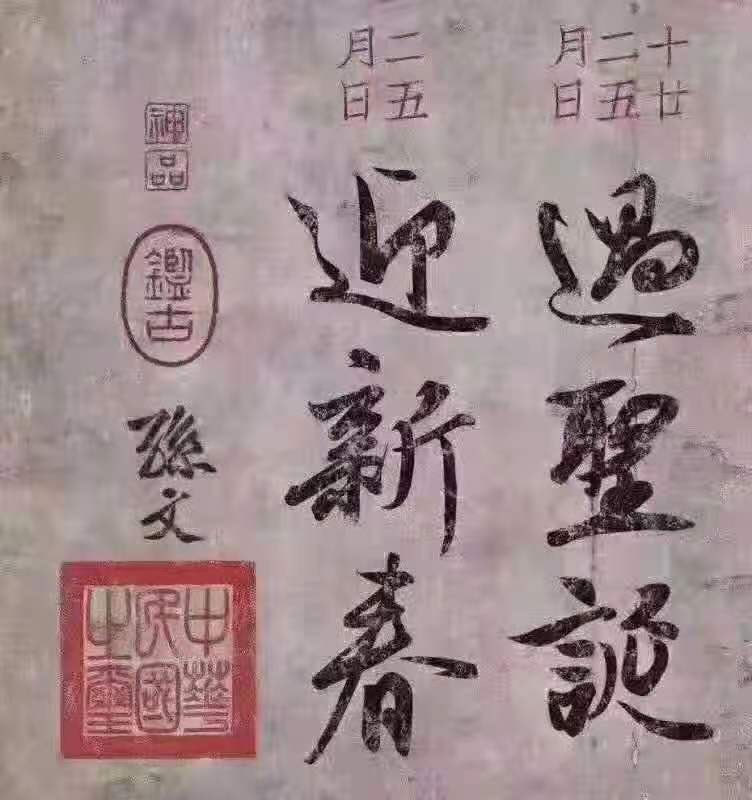 十二月
廿五日
過聖誕
二月
五日
近新春
神品
鑑古
孫文
中華
民國
之璽